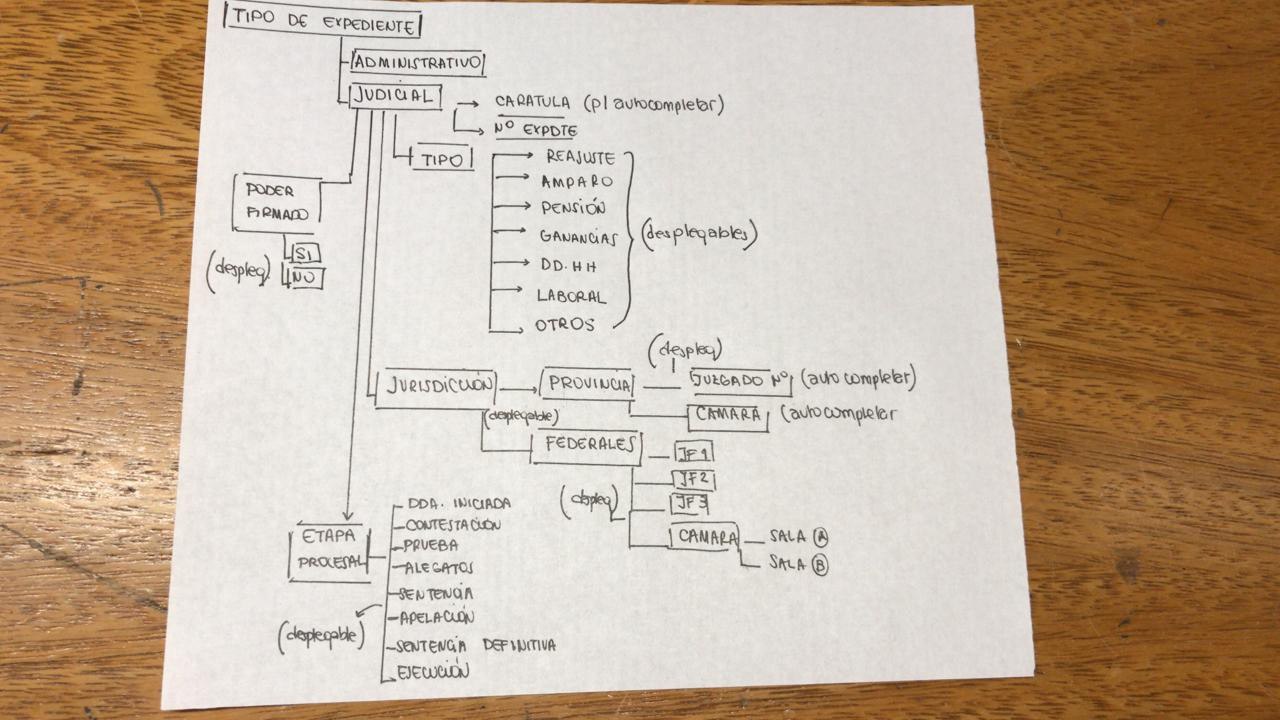 TIPO DE EXPEDIENTE
ADMINISTRATIVO
JUDICIAL
CARATULA (p/ autocompletar)
Nº EXPDTE
TIPO
REAJUSTE
AMPARO
PENSIÓN
GANANCIAS
DD.HH
LABORAL
OTROS
(desplegables)
PODER
FIRMADO
(despleg)
SI
NO
JURISDICCIÓN
(desplegable)
PROVINCIA
(despleg)
JUZGADO Nº (auto completar)
CAMARA (autocompletar
FEDERALES
(despleg)
JF1
JF2
JF3
CAMARA
SALA A
SALA B
ETAPA
PROCESAL
(desplegable)
DDA. INICIADA
CONTESTACIÓN
PRUEBA
ALEGATOS
SENTENCIA
APELACIÓN
SENTENCIA DEFINITIVA
EJECUCIÓN